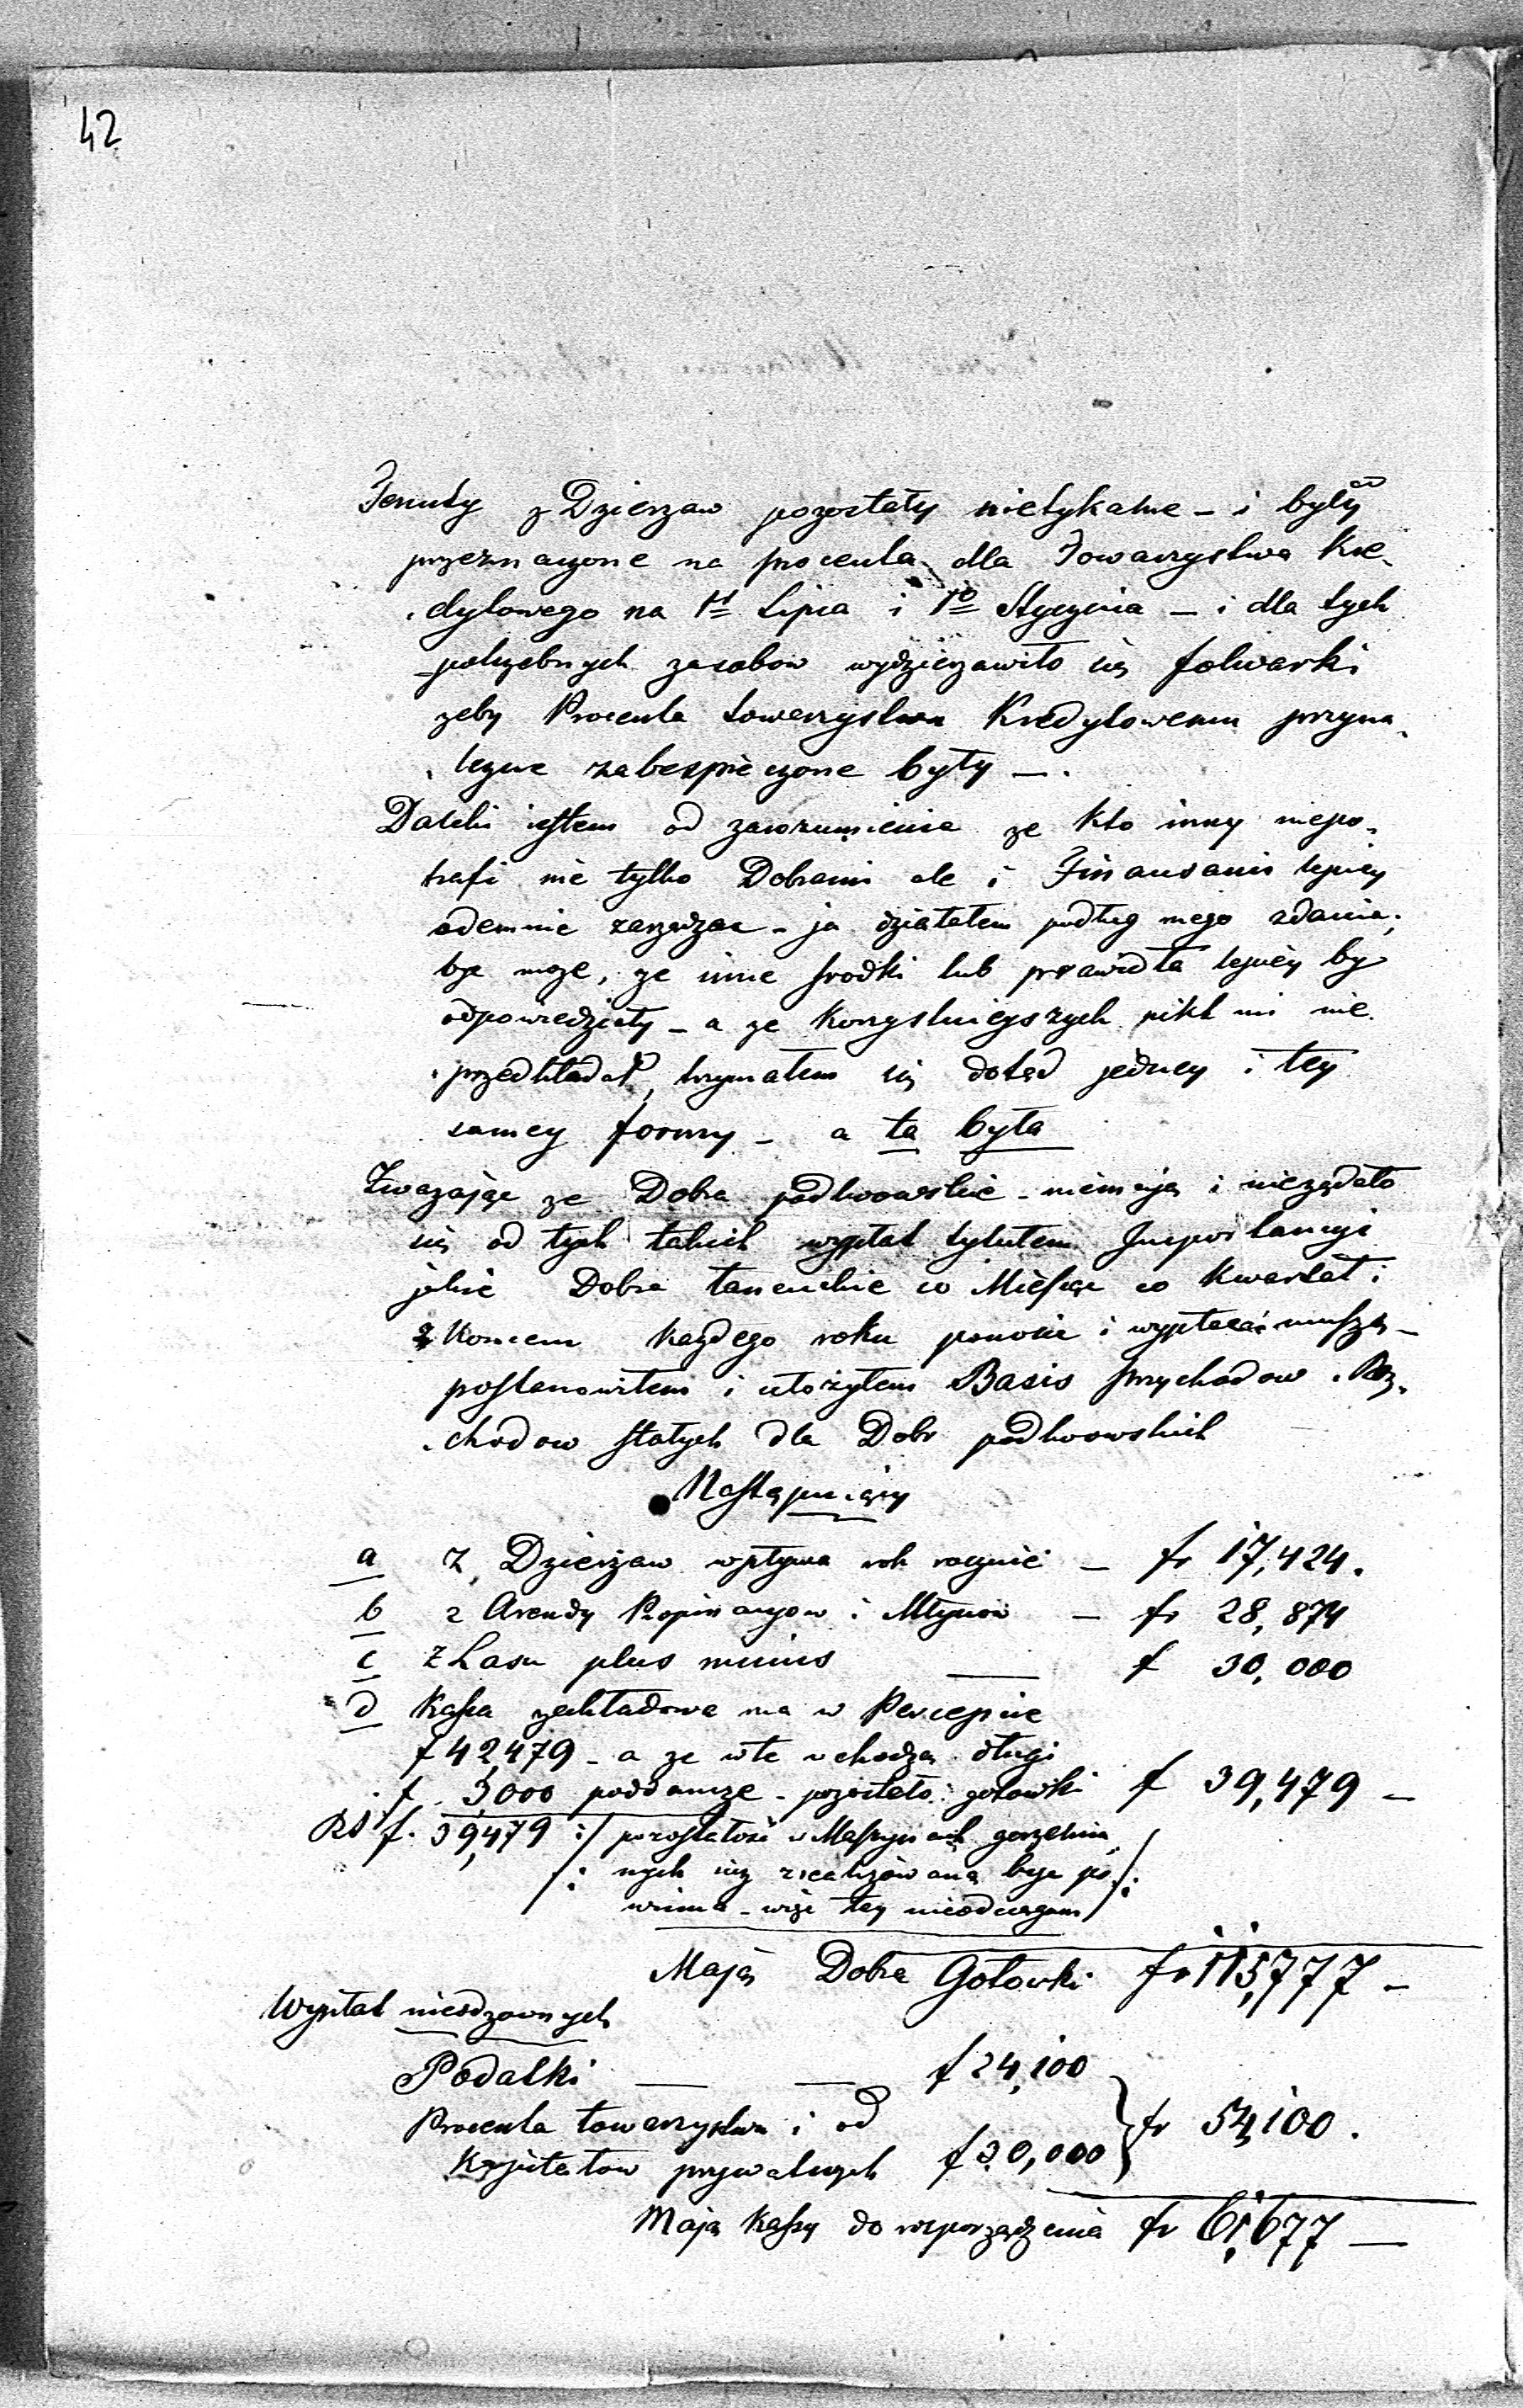 42
Tenuty z Dzierzaw pozostały nietykalne – i były
przeznaczone na procenta dla Towarzystwa Kre-
dytowego na 1go Lipca i 1go Stycznia – i dla tych
potrzebnych zasobow wydzierzawiło się folwarki
zeby Procenta towarzystwu Kredytowemu przyna-
lezne zabespieczone były –.
Daleki iestem od zarozumienia ze kto inny niepo-
trafi nie tylko Dobrami ale i Finansami lepiey
odemnie zarządzac – ja działałem podług mego zdania,
byc moze, ze inne srodki lub prawidła lepiey by
odpowiedziały – a ze korzystnieyszych nikt mi nie
przedkładał, trzymałem się dotąd jedney i tey
samey formy – a ta była
Zwazając ze Dobra podlwowskie – niemają i nieządało
się od tych takich wypłat tytułem Importancyi
jakie Dobra łancuckie co Miesiąc co Kwartał i
z Koncem kazdego roku ponosic i wypłacać muszą –
postanowiłem i ułożyłem Basis przychodow i Roz-
chodow stałych dla Dobr podlwowskich
Następuiący
a z Dzierzaw wpływa rok rocznie – fr 17,424.
b z Arendy Propinacyow i Młynow – fr 28,874
c z Lasu plus minus — f 30,000
d Kassa zakładowa ma w Percepcie
f 42,479 – a ze w te wchodzą długi
f 3,000 poddancze – pozostało gotowki f 39,479 –
f. 39,479 :/ pozostałość w Maszynach gorzelnia-
/: nych iuz zrealizowaną byc po-
winna – więc tey nieodciągam /:
Mają Dobra Gotowki fr 115,777 –
Wypłat nieodzownych
Podatki — — f 24,100
Procenta towarzystwu i od
Kapitałow prywatnych f 30,000 } fr 54,100.
Mają Kassy do rozporządzenia fr 61,677 —